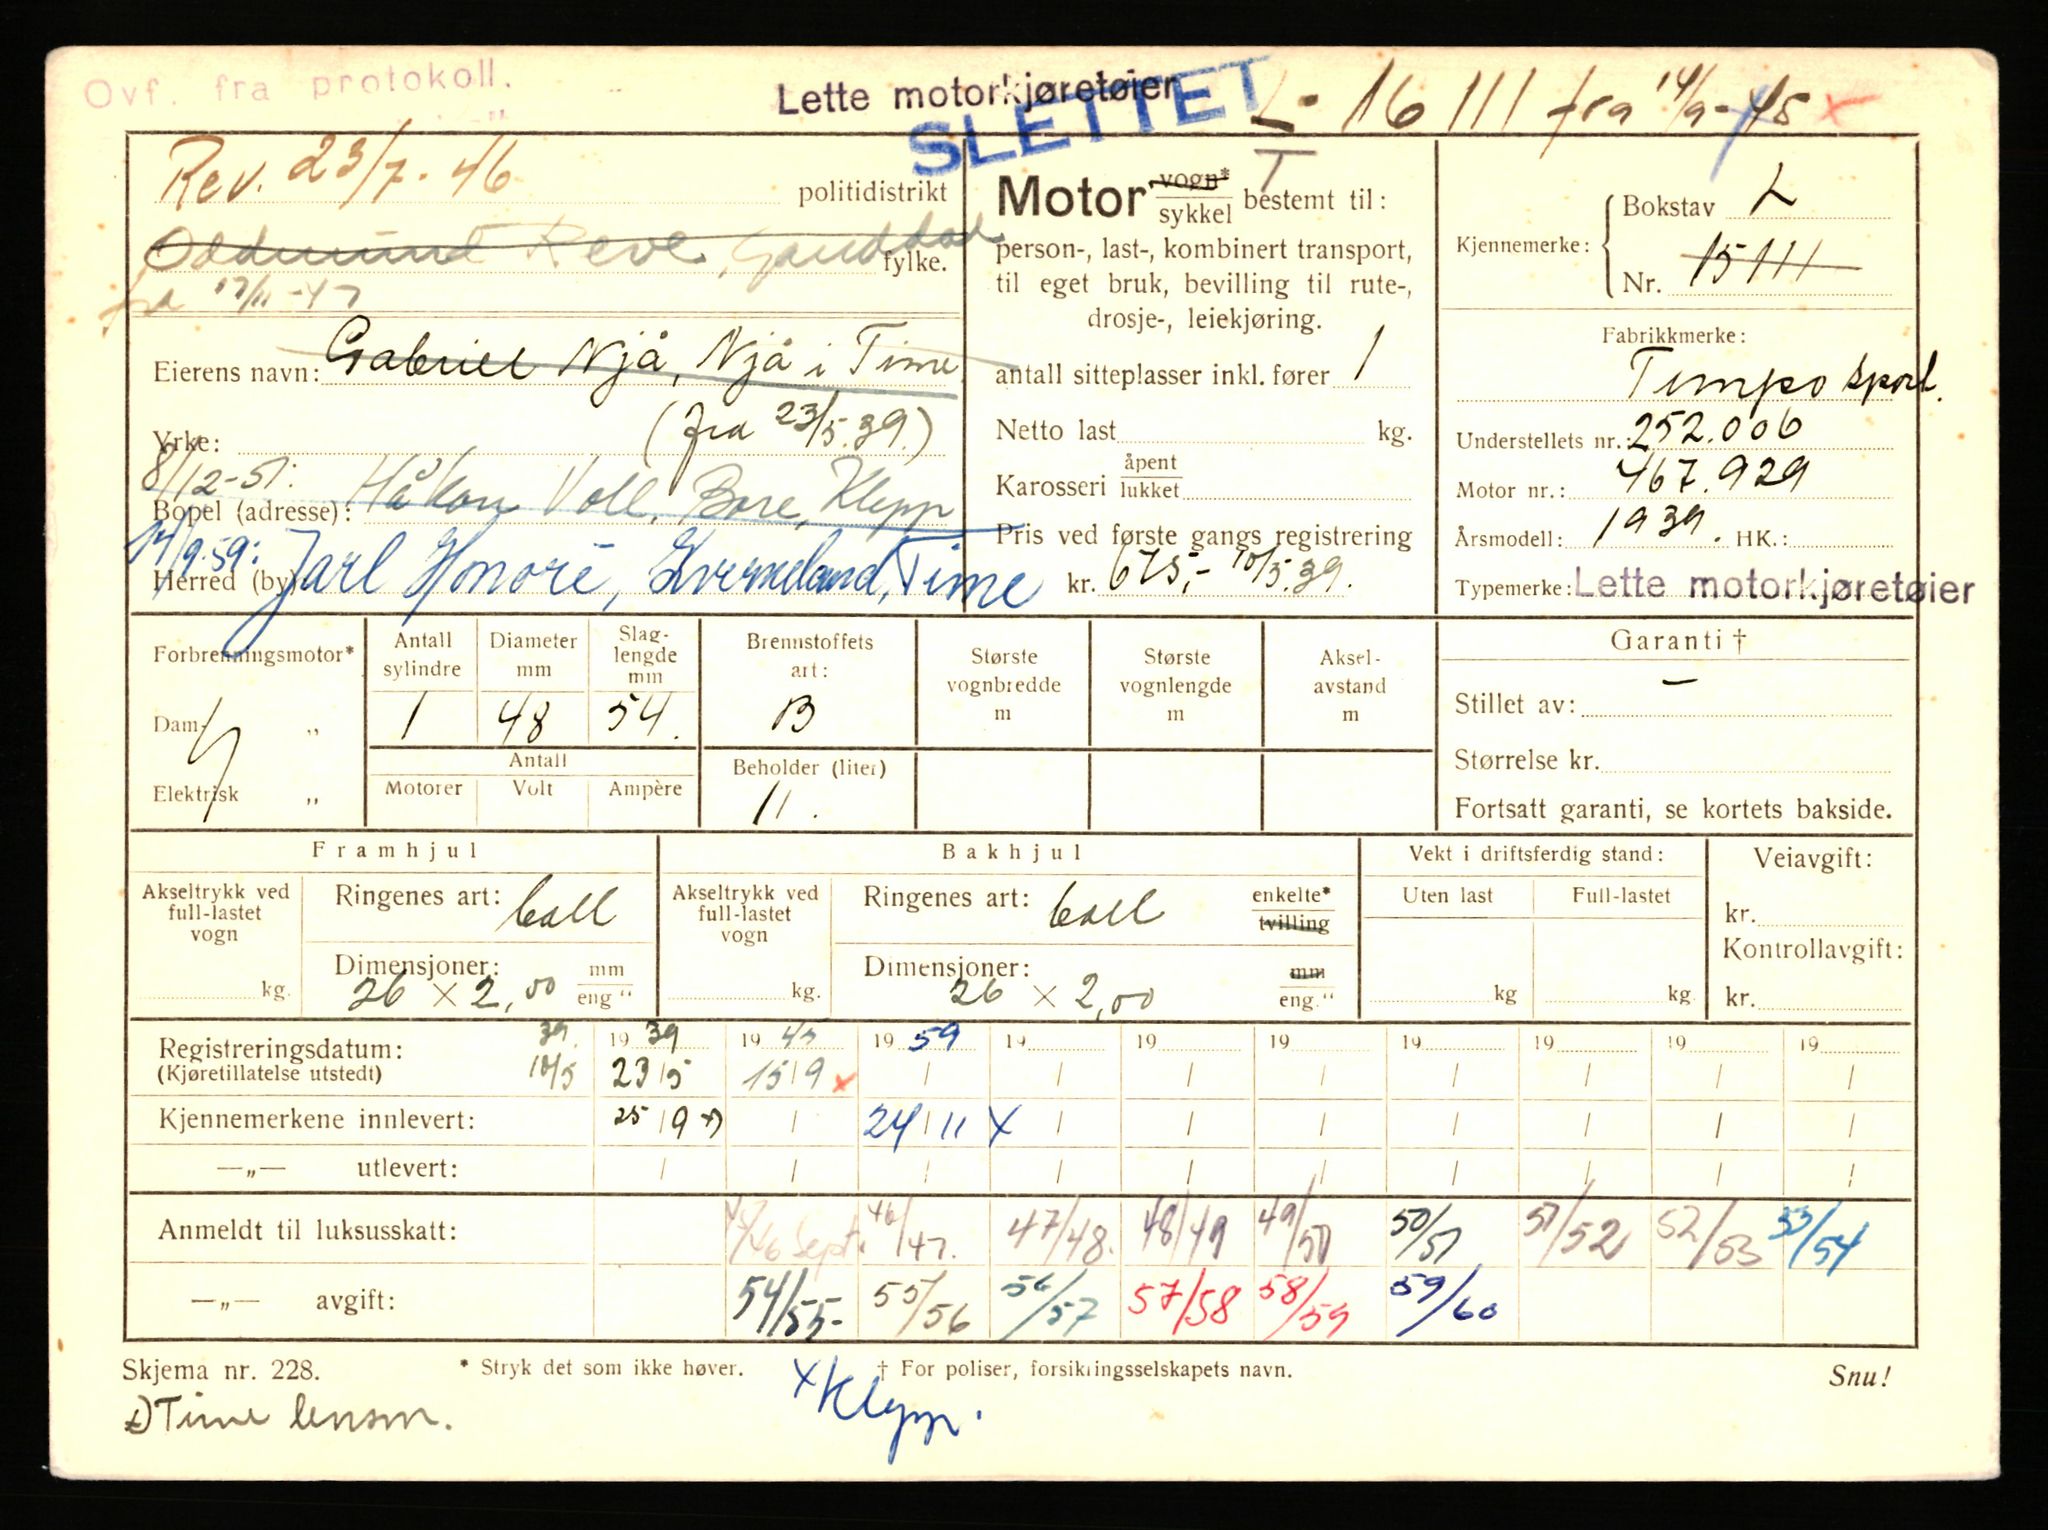 Ovf. fra protokoll.
Lette motorkjøretøier
SLETTET
L- 16111 fra 14/9-45 x
Rev. 23/7-46
politidistrikt
Oddmund Reve, Gauddal
fylke.
fra 17/11-47
Eierens navn: Gabriel Njå, Njå i Time
(fra 23/5.39.)
Yrke:
8/12-51: Håkon Voll, Bore, Klepp
Bopel (adresse):
14/9-59: Jarl Honoré, Kverneland, Time
Herred (by)
Motor vogn* sykkel bestemt til: T
person-, last-, kombinert transport,
til eget bruk, bevilling til rute-,
drosje-, leiekjøring.
antall sitteplasser inkl. fører 1
Netto last kg.
Karosseri åpent lukket
Pris ved første gangs registrering
kr. 675,- 10/5.39.
Kjennemerke: Bokstav L
Nr. 15111
Fabrikkmerke:
Tempo Sport.
Understellets nr.: 252.006
Motor nr.: 467.929
Årsmodell: 1939. HK.:
Typemerke: Lette motorkjøretøier
Forbrenningsmotor*
Dam- „
Elektrisk „
Antall sylindre 1
Diameter mm 48
Slag-lengde mm 54.
Antall
Motorer Volt Ampère
Brennstoffets art: B
Beholder (liter) 11.
Største vognbredde m
Største vognlengde m
Aksel-avstand m
Garanti †
Stillet av: —
Størrelse kr.
Fortsatt garanti, se kortets bakside.
Framhjul
Akseltrykk ved full-lastet vogn kg.
Ringenes art: ball
Dimensjoner: mm
26 × 2,00 eng "
Bakhjul
Akseltrykk ved full-lastet vogn kg.
Ringenes art: ball enkelte* tvilling
Dimensjoner: mm
26 × 2,00 eng."
Vekt i driftsferdig stand:
Uten last Full-lastet
kg kg.
Veiavgift:
kr.
Kontrollavgift:
kr.
Registreringsdatum: 39. 1939 1945 1959 19 19 19 19 19 19 19
(Kjøretillatelse utstedt) 10/5 23/5 15/9 x / / / / / / / /
Kjennemerkene innlevert: 25/9 / 24/11 X / / / / / / /
—„— utlevert: / / / / / / / / / /
Anmeldt til luksusskatt: 45/46 Sept. 46/47. 47/48. 48/49 49/50 50/51 51/52 52/53 53/54
—„— avgift: 54/55- 55/56 56/57 57/58 58/59 59/60
Skjema nr. 228. * Stryk det som ikke høver. † For poliser, forsikringsselskapets navn. Snu!
Time lensm.
x Klepp.